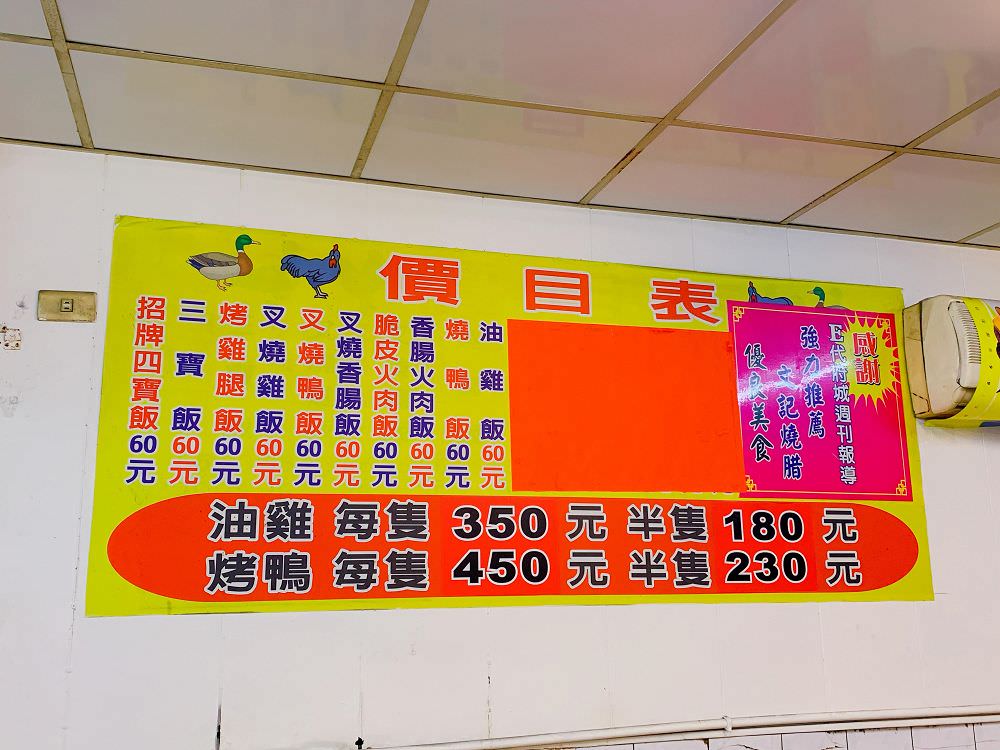 價目表
招牌四寶飯60元
三寶飯60元
烤雞腿飯60元
叉燒雞飯60元
叉燒鴨飯60元
叉燒香腸飯60元
脆皮火肉飯60元
香腸火肉飯60元
燒鴨飯60元
油雞飯60元
感謝
E代府城週刊報導
強力推薦
文記燒腊
優良美食
油雞 每隻 350 元 半隻 180 元
烤鴨 每隻 450 元 半隻 230 元